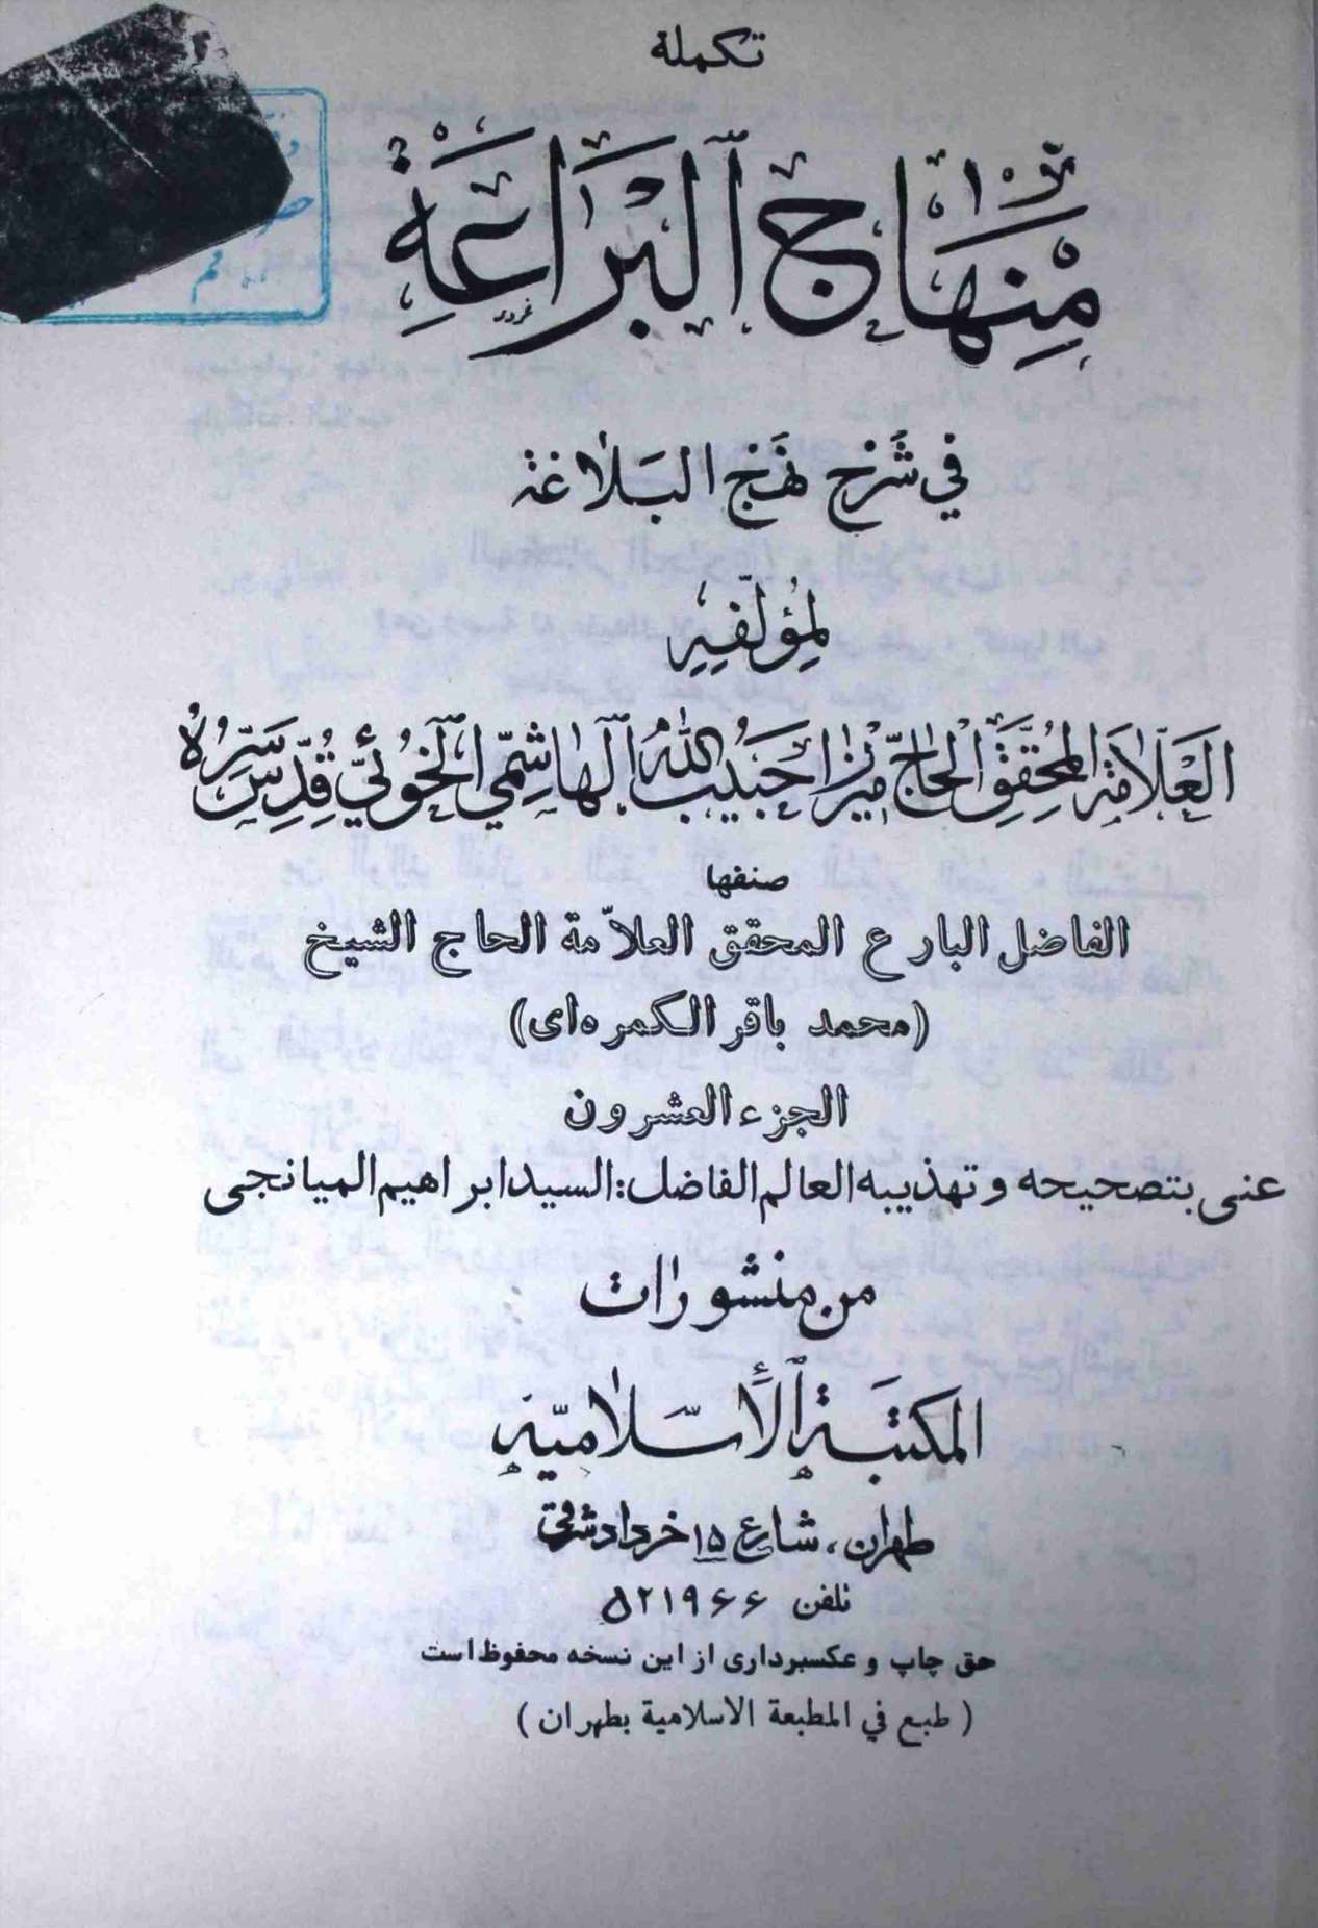 تكملة
مِنهَاجُ البَرَاعَةِ
في شَرْحِ نَهجِ البَلَاغَة
لِمُؤلّفِهِ
العَلّامَة المُحَقِّق الحَاجّ ميرزا حَبيبُ اللهُ الهاشِمّي الخوُئيّ قُدِّسَ سِرُّهُ
صنفها
الفاضل البارع المحقق العلاّمة الحاج الشيخ
(محمد باقر الكمره‌اى)
الجزء العشرون
عنى بتصحيحه و تهذيبه العالم الفاضل: السيد ابراهيم الميانجى
من منشورات
المكتَبة الأسلاميّة
طهران، شارع ۱۵ خرداد شرقی
تلفن ۵۲۱۹۶۶
حق چاپ و عکسبرداری از این نسخه محفوظ است
( طبع في المطبعة الاسلامية بطهران )